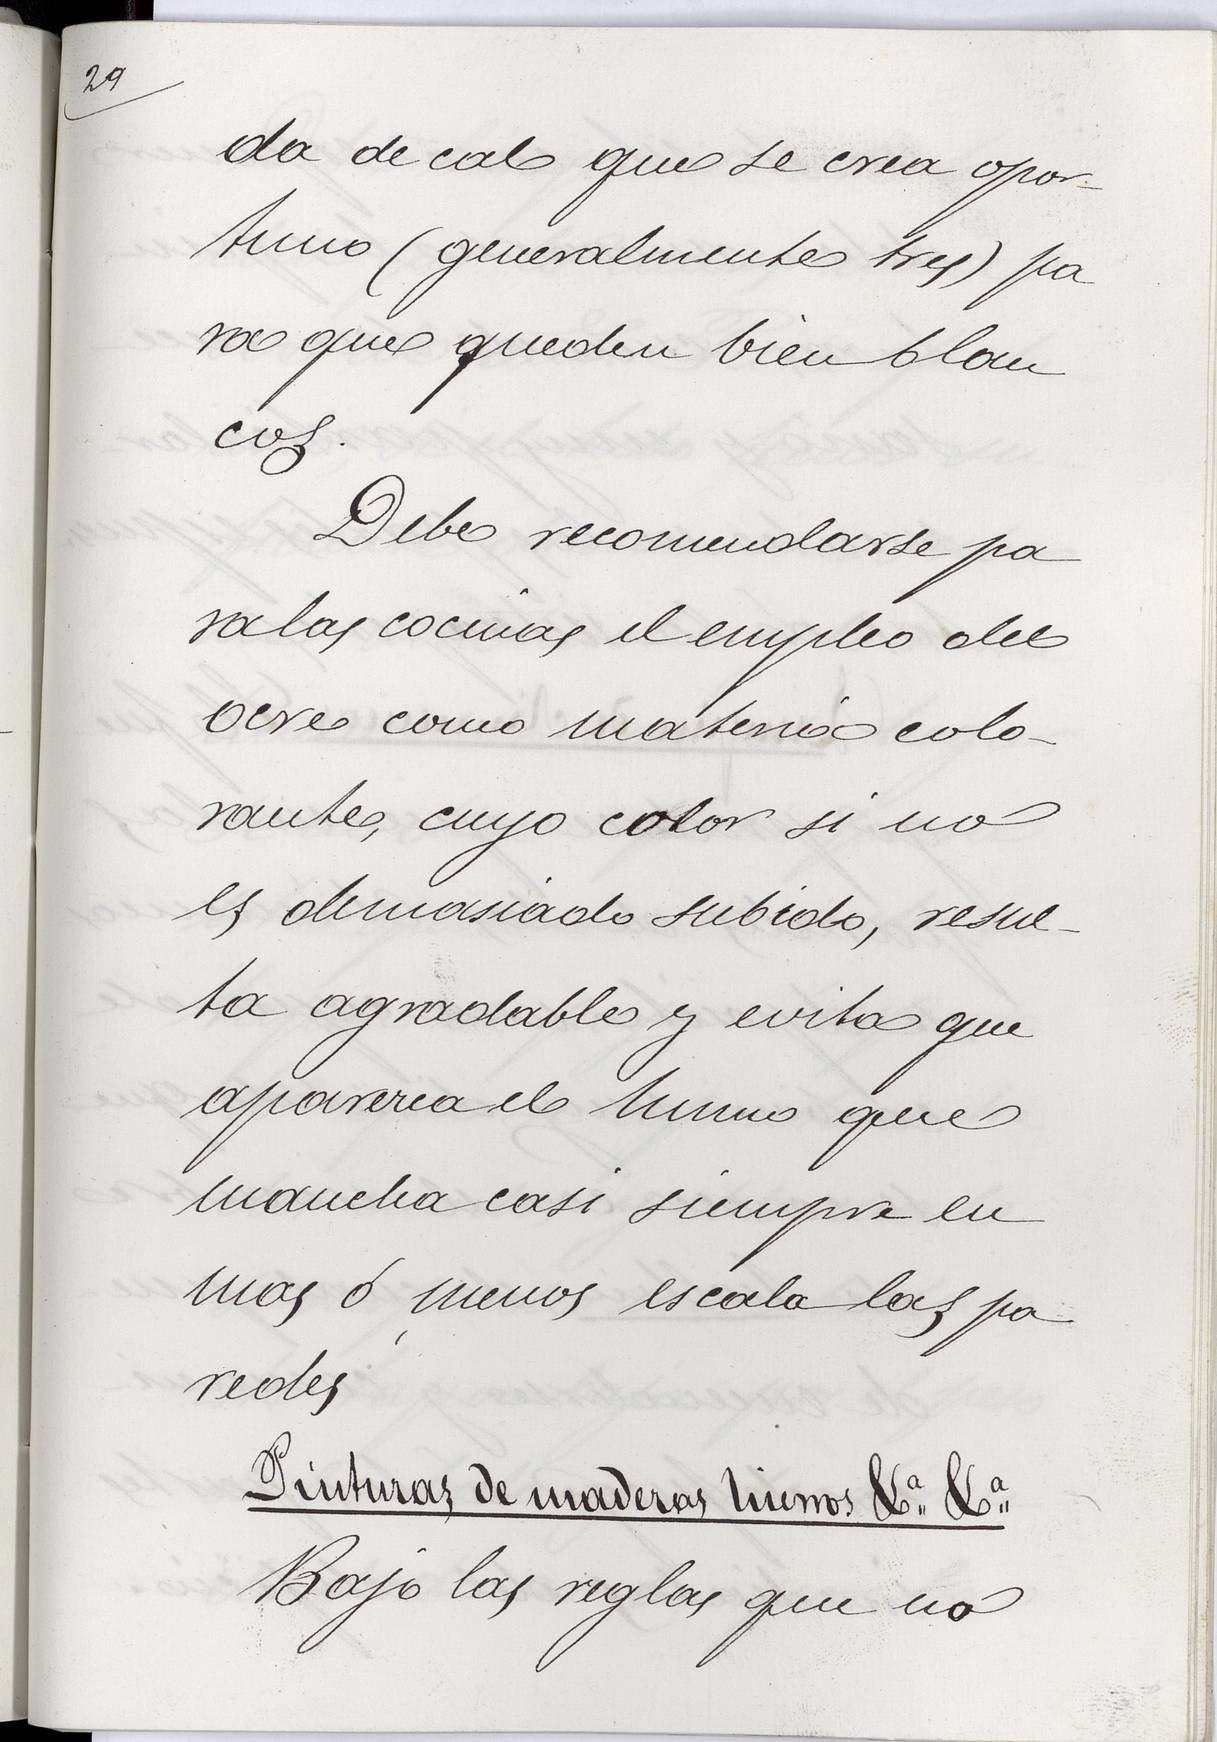 29
da de cal que se crea opor-
tuno (generalmente tres) pa
ra que queden bien blan
cos.
Debe recomendarse pa
ra las cocinas el empleo del
ocre como materia colo-
rante, cuyo color si no
es demasiado subido, resul-
ta agradable y evita que
aparezca el humo que
mancha casi siempre en
mas ó menos escala las pa
redes
Pinturas de maderas hierros &ª &ª
Bajo las reglas que no